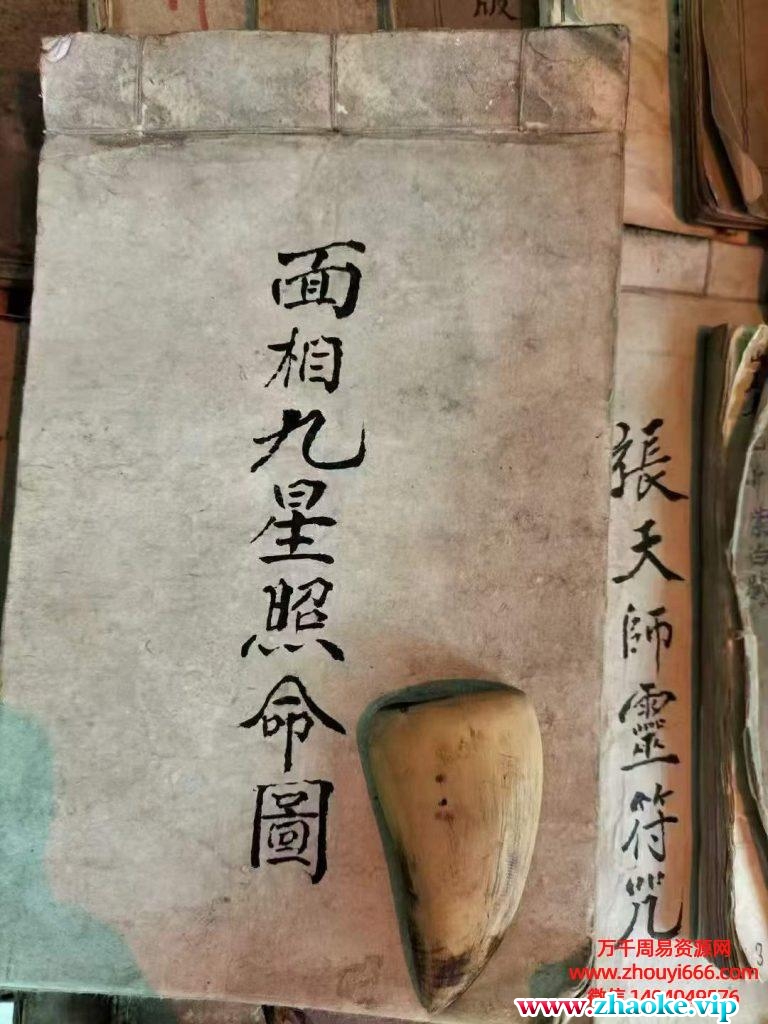 面相九星照命圖
張天師靈符咒
版
万千周易资源网
www.zhouyi666.com
www.zhaoke.vip